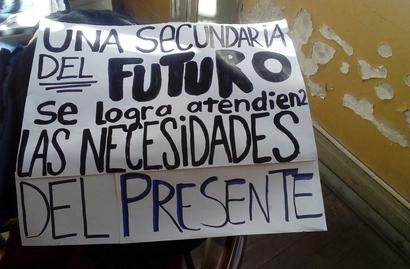 UNA SECUNDARIA
DEL FUTURO
se logra atendien2
LAS NECESIDADES
DEL PRESENTE